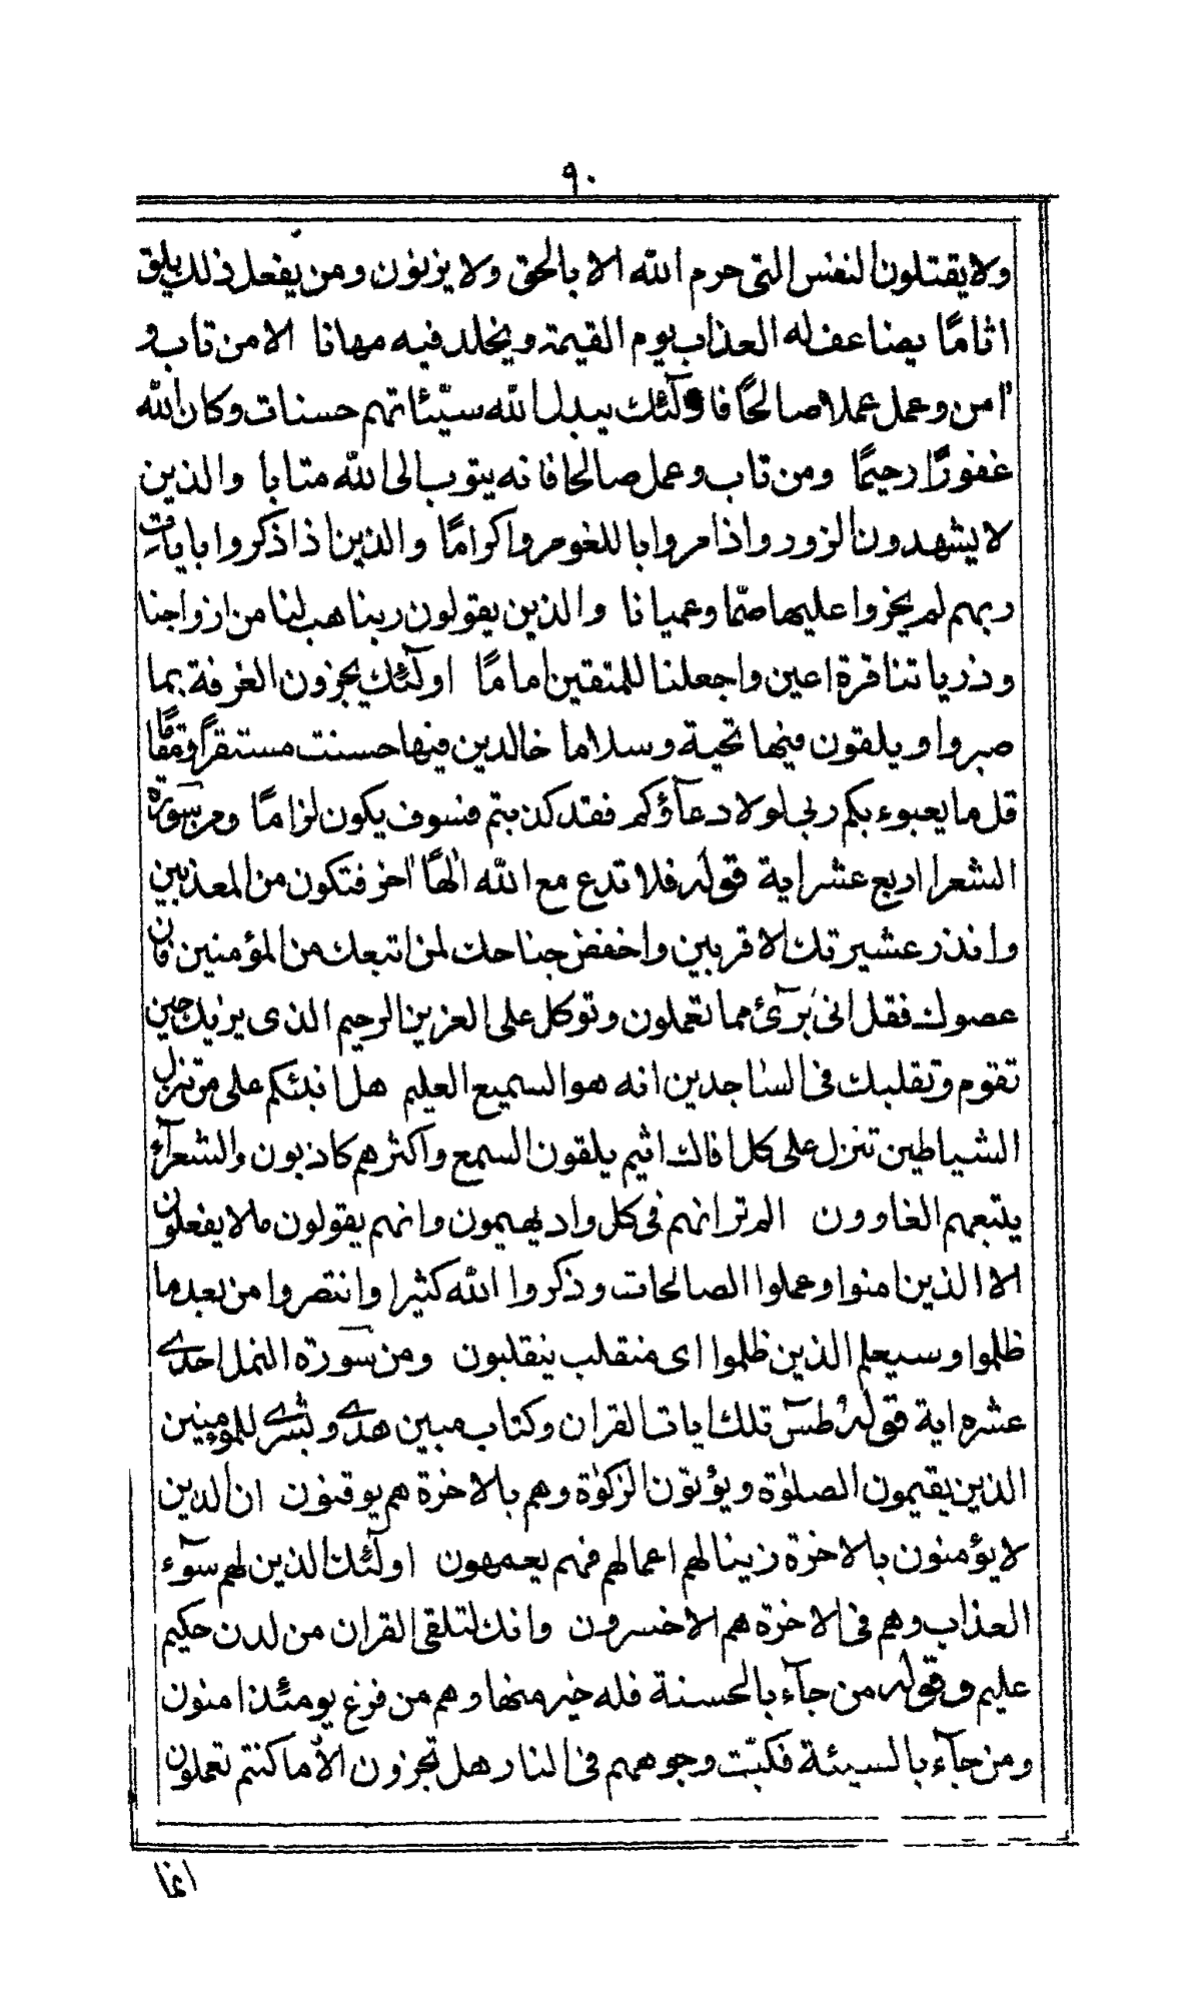 ٩٠
ولا يقتلون النفس التى حرم الله الا بالحق ولا يزنون ومن يفعل ذلك يلق
اثامًا يضاعف له العذاب يوم القيمة ويخلد فيه مهانا الا من تاب و
امن وعمل عملا صالحًا فاولٓئك يبدل الله سيّئاتهم حسنات وكان الله
غفورًا رحيمًا ومن تاب وعمل صالحا فانه يتوب الى الله متابا والذين
لا يشهدون الزور واذا مروا باللغو مروا كرامًا والذين اذا ذكروا بايات
ربهم لم يخروا عليها صمّا وعميانا والذين يقولون ربنا هب لنا من ازواجنا
وذرياتنا قرة اعين واجعلنا للمتقين امامًا اولٓئك يجزون الغرفة بما
صبروا ويلقون فيها تحية وسلاما خالدين فيها حسنت مستقرًا ومقامًا
قل ما يعبوء بكم ربى لولا دعآؤكم فقد كذبتم فسوف يكون لزامًا ومن سورة
الشعرا اربع عشر اية قوله فلا تدع مع الله الٰهًا اخر فتكون من المعذبين
وانذر عشيرتك الاقربين واخفض جناحك لمن اتبعك من المؤمنين فان
عصوك فقل انى برٓئ مما تعملون وتوكل على العزيز الرحيم الذى يريك حين
تقوم وتقلبك فى الساجدين انه هو السميع العليم هل انبئكم على من تنزل
الشياطين تنزل على كل افاك اثيم يلقون السمع واكثرهم كاذبون والشعرآء
يتبعهم الغاوون الم تر انهم فى كل واد يهيمون وانهم يقولون ما لا يفعلون
الا الذين امنوا وعملوا الصالحات وذكروا الله كثيرا وانتصروا من بعد ما
ظلموا وسيعلم الذين ظلموا اى منقلب ينقلبون ومن سورة النمل احدى
عشره اية قوله طسٓ تلك ايات القران وكتاب مبين هدى وبشرى للمومنين
الذين يقيمون الصلوٰة ويؤتون الزكوٰة وهم بالاخرة هم يوقنون ان الذين
لا يؤمنون بالاخرة زينا لهم اعمالهم فهم يعمهون اولٓئك الذين لهم سوٓء
العذاب وهم فى الاخرة هم الاخسرون وانك لتلقى القران من لدن حكيم
عليم وقوله من جآء بالحسنة فله خير منها وهم من فزع يومئذ امنون
ومن جآء بالسيئة فكبّت وجوههم فى النار هل تجزون الّا ما كنتم تعملون
انما